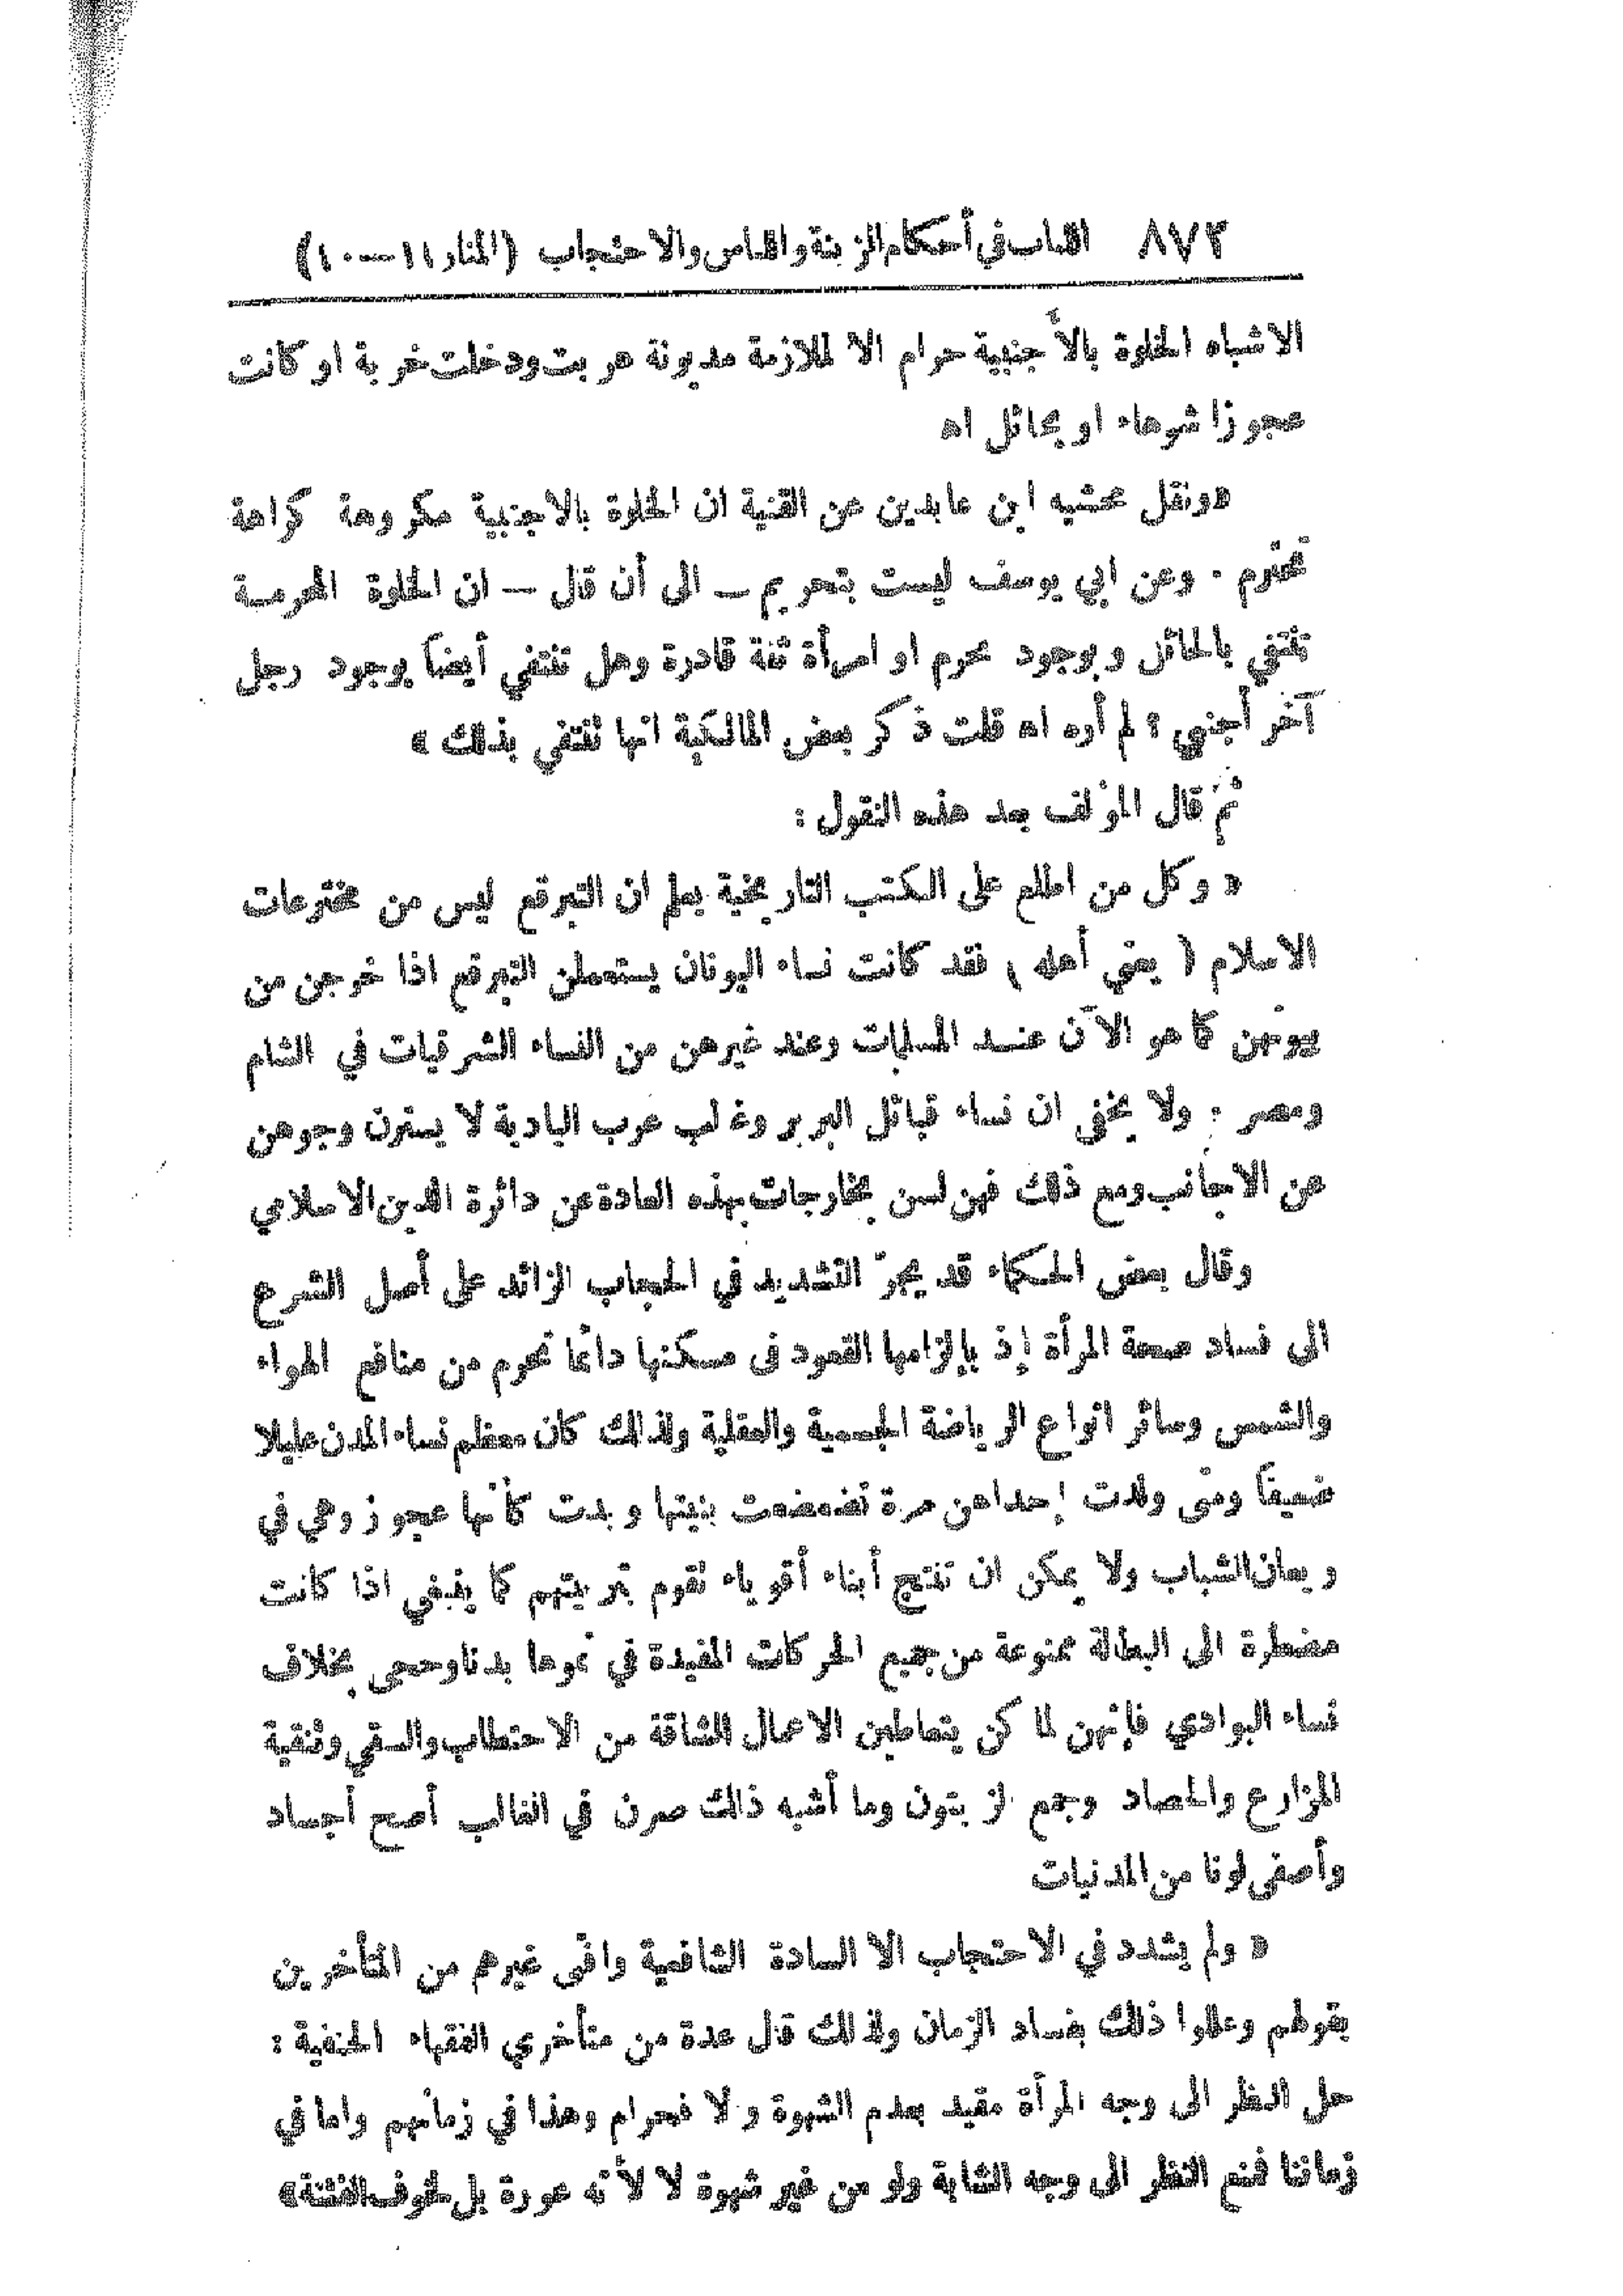 ٨٧٢ اللباب في أحكام الزينة واللباس والاحتجاب (المنار ١١–١٠)
الاشباه الخلوة بالأجنبية حرام الا لملازمة مديونة هربت ودخلت خربة او كانت
عجوزا شوهاء او بحائل اه
«ونقل محشيه ابن عابدين عن القنية ان الخلوة بالاجنبية مكروهة كراهة
تحريم . وعن ابي يوسف ليست بتحريم – الى أن قال – ان الخلوة المحرمة
تنتفي بالحائل وبوجود محرم او امرأة ثقة قادرة وهل تنتفي أيضاً بوجود رجل
آخر أجنبي ؟ لم أره اه قلت ذكر بعض المالكية انها تنتفي بذلك »
ثم قال المؤلف بعد هذه النقول :
« وكل من اطلع على الكتب التاريخية يعلم ان التبرقع ليس من مخترعات
الاسلام ( يعني أهله ) فقد كانت نساء اليونان يستعملن التبرقع اذا خرجن من
بيوتهن كما هو الآن عند المسلمات وعند غيرهن من النساء الشرقيات في الشام
ومصر : ولا يخفى ان نساء قبائل البربر وغالب عرب البادية لا يسترن وجوههن
عن الاجانب ومع ذلك فهن لسن بخارجات بهذه العادة عن دائرة الدين الاسلامي
وقال بعض الحكماء قد يجرّ التشديد في الحجاب الزائد على أصل الشرع
الى فساد صحة المرأة إذ بإلزامها القعود في مسكنها دائمًا تحرم من منافع الهواء
والشمس وسائر انواع الرياضة الجسمية والعقلية ولذلك كان معظم نساء المدن عليلا
ضعيفاً ومتى ولدت إحداهن مرة تضعضعت بنيتها وبدت كأنها عجوز وهي في
ريعان الشباب ولا يمكن ان تنتج أبناء أقوياء تقوم بتربيتهم كما ينبغي اذا كانت
مضطرة الى البطالة ممنوعة من جميع الحركات المفيدة في نموها بدنا وحجى بخلاف
نساء البوادي فإنهن لما كن يتعاطين الاعمال الشاقة من الاحتطاب والسقي وتنقية
المزارع والحصاد وجمع الزيتون وما أشبه ذلك صرن في الغالب أصح أجساد
وأصفى لونا من المدنيات
« ولم يشدد في الاحتجاب الا السادة الشافعية وافتى غيرهم من المتأخرين
بقولهم وعللوا ذلك بفساد الزمان ولذلك قال عدة من متأخري الفقهاء الحنفية :
حل النظر الى وجه المرأة مقيد بعدم الشهوة ولا فحرام وهذا في زمانهم واما في
زماننا فمنع النظر الى وجه الشابة ولو من غير شهوة لا لأنه عورة بل لخوف الفتنة»